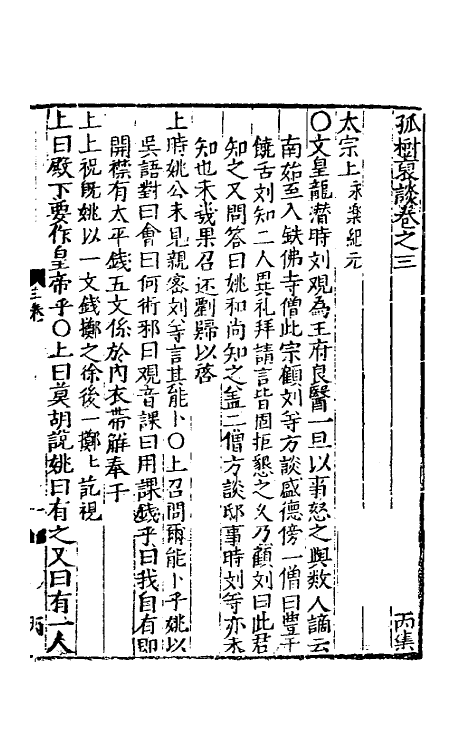 孤樹裒談卷之三　丙集
太宗上永楽紀元
〇文皇龍潛時刘観為王府良醫一旦以事怒之與数人謫云
南茹至入鉄佛寺僧此宗顧刘等方談盛德傍一僧曰豊干
饒舌刘知二人異礼拜請言皆固拒懇之久乃顧刘曰此君
知之又問答曰姚和尚知之盖二僧方談邸事時刘等亦未
知也未㡬果召还劉歸以啓
上時姚公未見親密刘等言其能卜〇上召問爾能卜乎姚以
吳語對曰會曰何術邪曰观音課曰用課錢乎曰我自有即
開襟有太平錢五文係於內衣帶解奉于
上上祝既姚以一文錢擲之徐後一擲上訖視
上曰殿下要作皇帝乎〇上曰莫胡說姚曰有之又曰有一人
三卷
丙